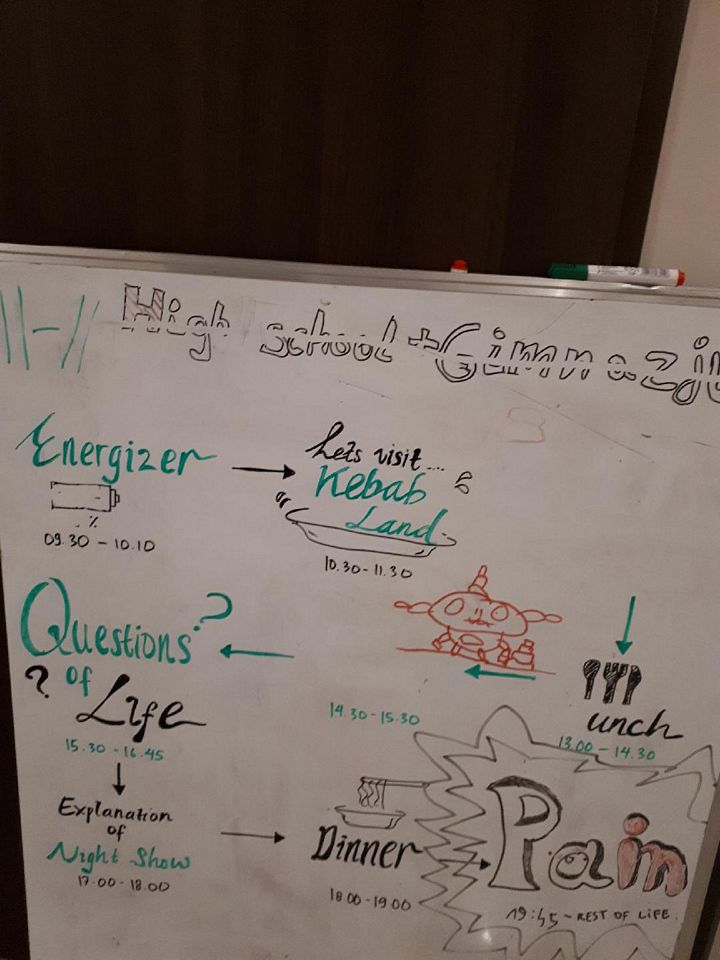 High school + Gimnazij
Energizer
%
09.30 - 10.10
Lets visit...
Kebab
Land
10.30 - 11.30
unch
13.00 - 14.30
14.30 - 15.30
Questions?
? of
Life
15.30 - 16.45
Explanation
of
Night Show
17.00 - 18.00
Dinner
18.00 - 19.00
Pain
19:45 - REST OF LIFE.